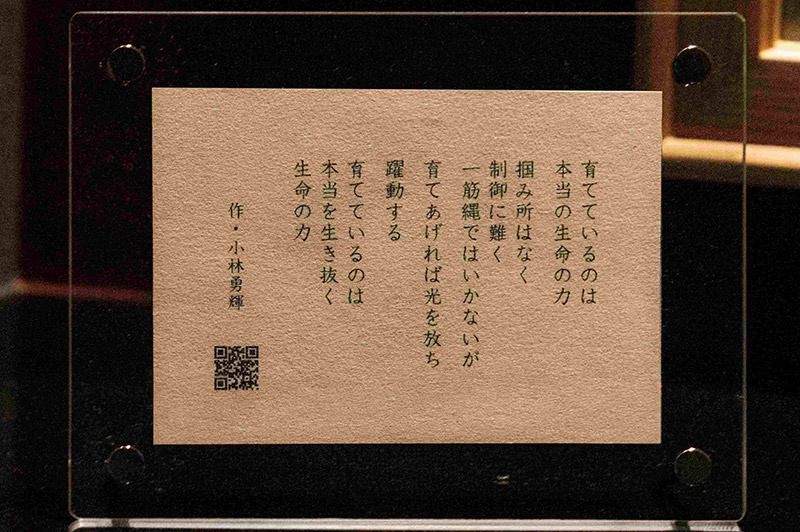 育てているのは
本当の生命の力
掴み所はなく
制御に難く
一筋縄ではいかないが
育てあげれば光を放ち
躍動する
育てているのは
本当を生き抜く
生命の力
作・小林勇輝